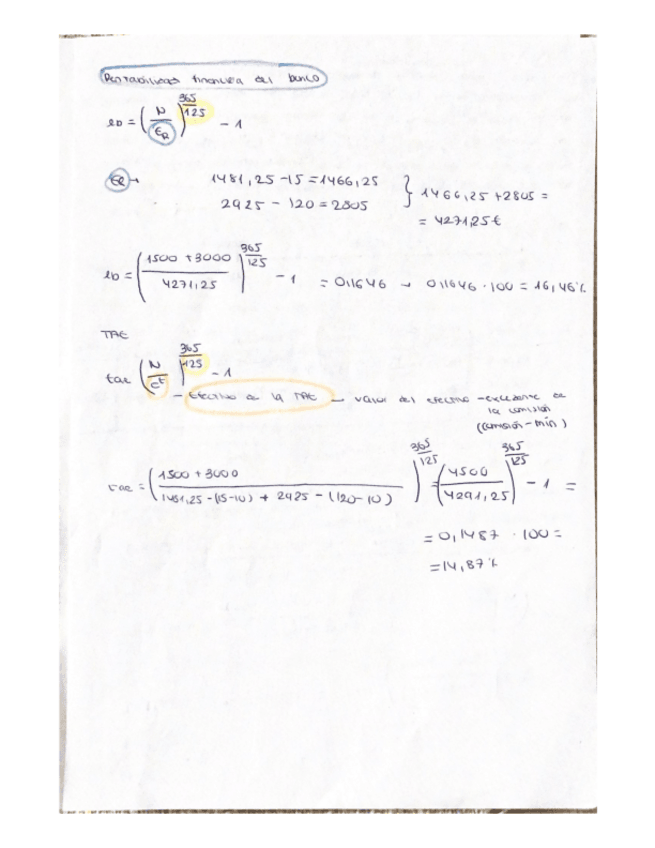 Rentabilidad financiera del banco
rb = (N / ER)^(365/125) - 1
ER → 1481,25 - 15 = 1466,25
2925 - 120 = 2805
} 1466,25 + 2805 =
= 4271,25 €
rb = ((1500 + 3000) / 4271,25)^(365/125) - 1 = 0,1646 → 0,1646 · 100 = 16,46 %
TAE
tae (N / Et)^(365/125) - 1
- Efectivo de la TAE → valor del efectivo - excedente de
la comisión
(comisión - mín)
tae = ((1500 + 3000) / (1481,25 - (15-10) + 2925 - (120-10)))^(365/125) = (4500 / 4291,25)^(365/125) - 1 =
= 0,1487 · 100 =
= 14,87 %